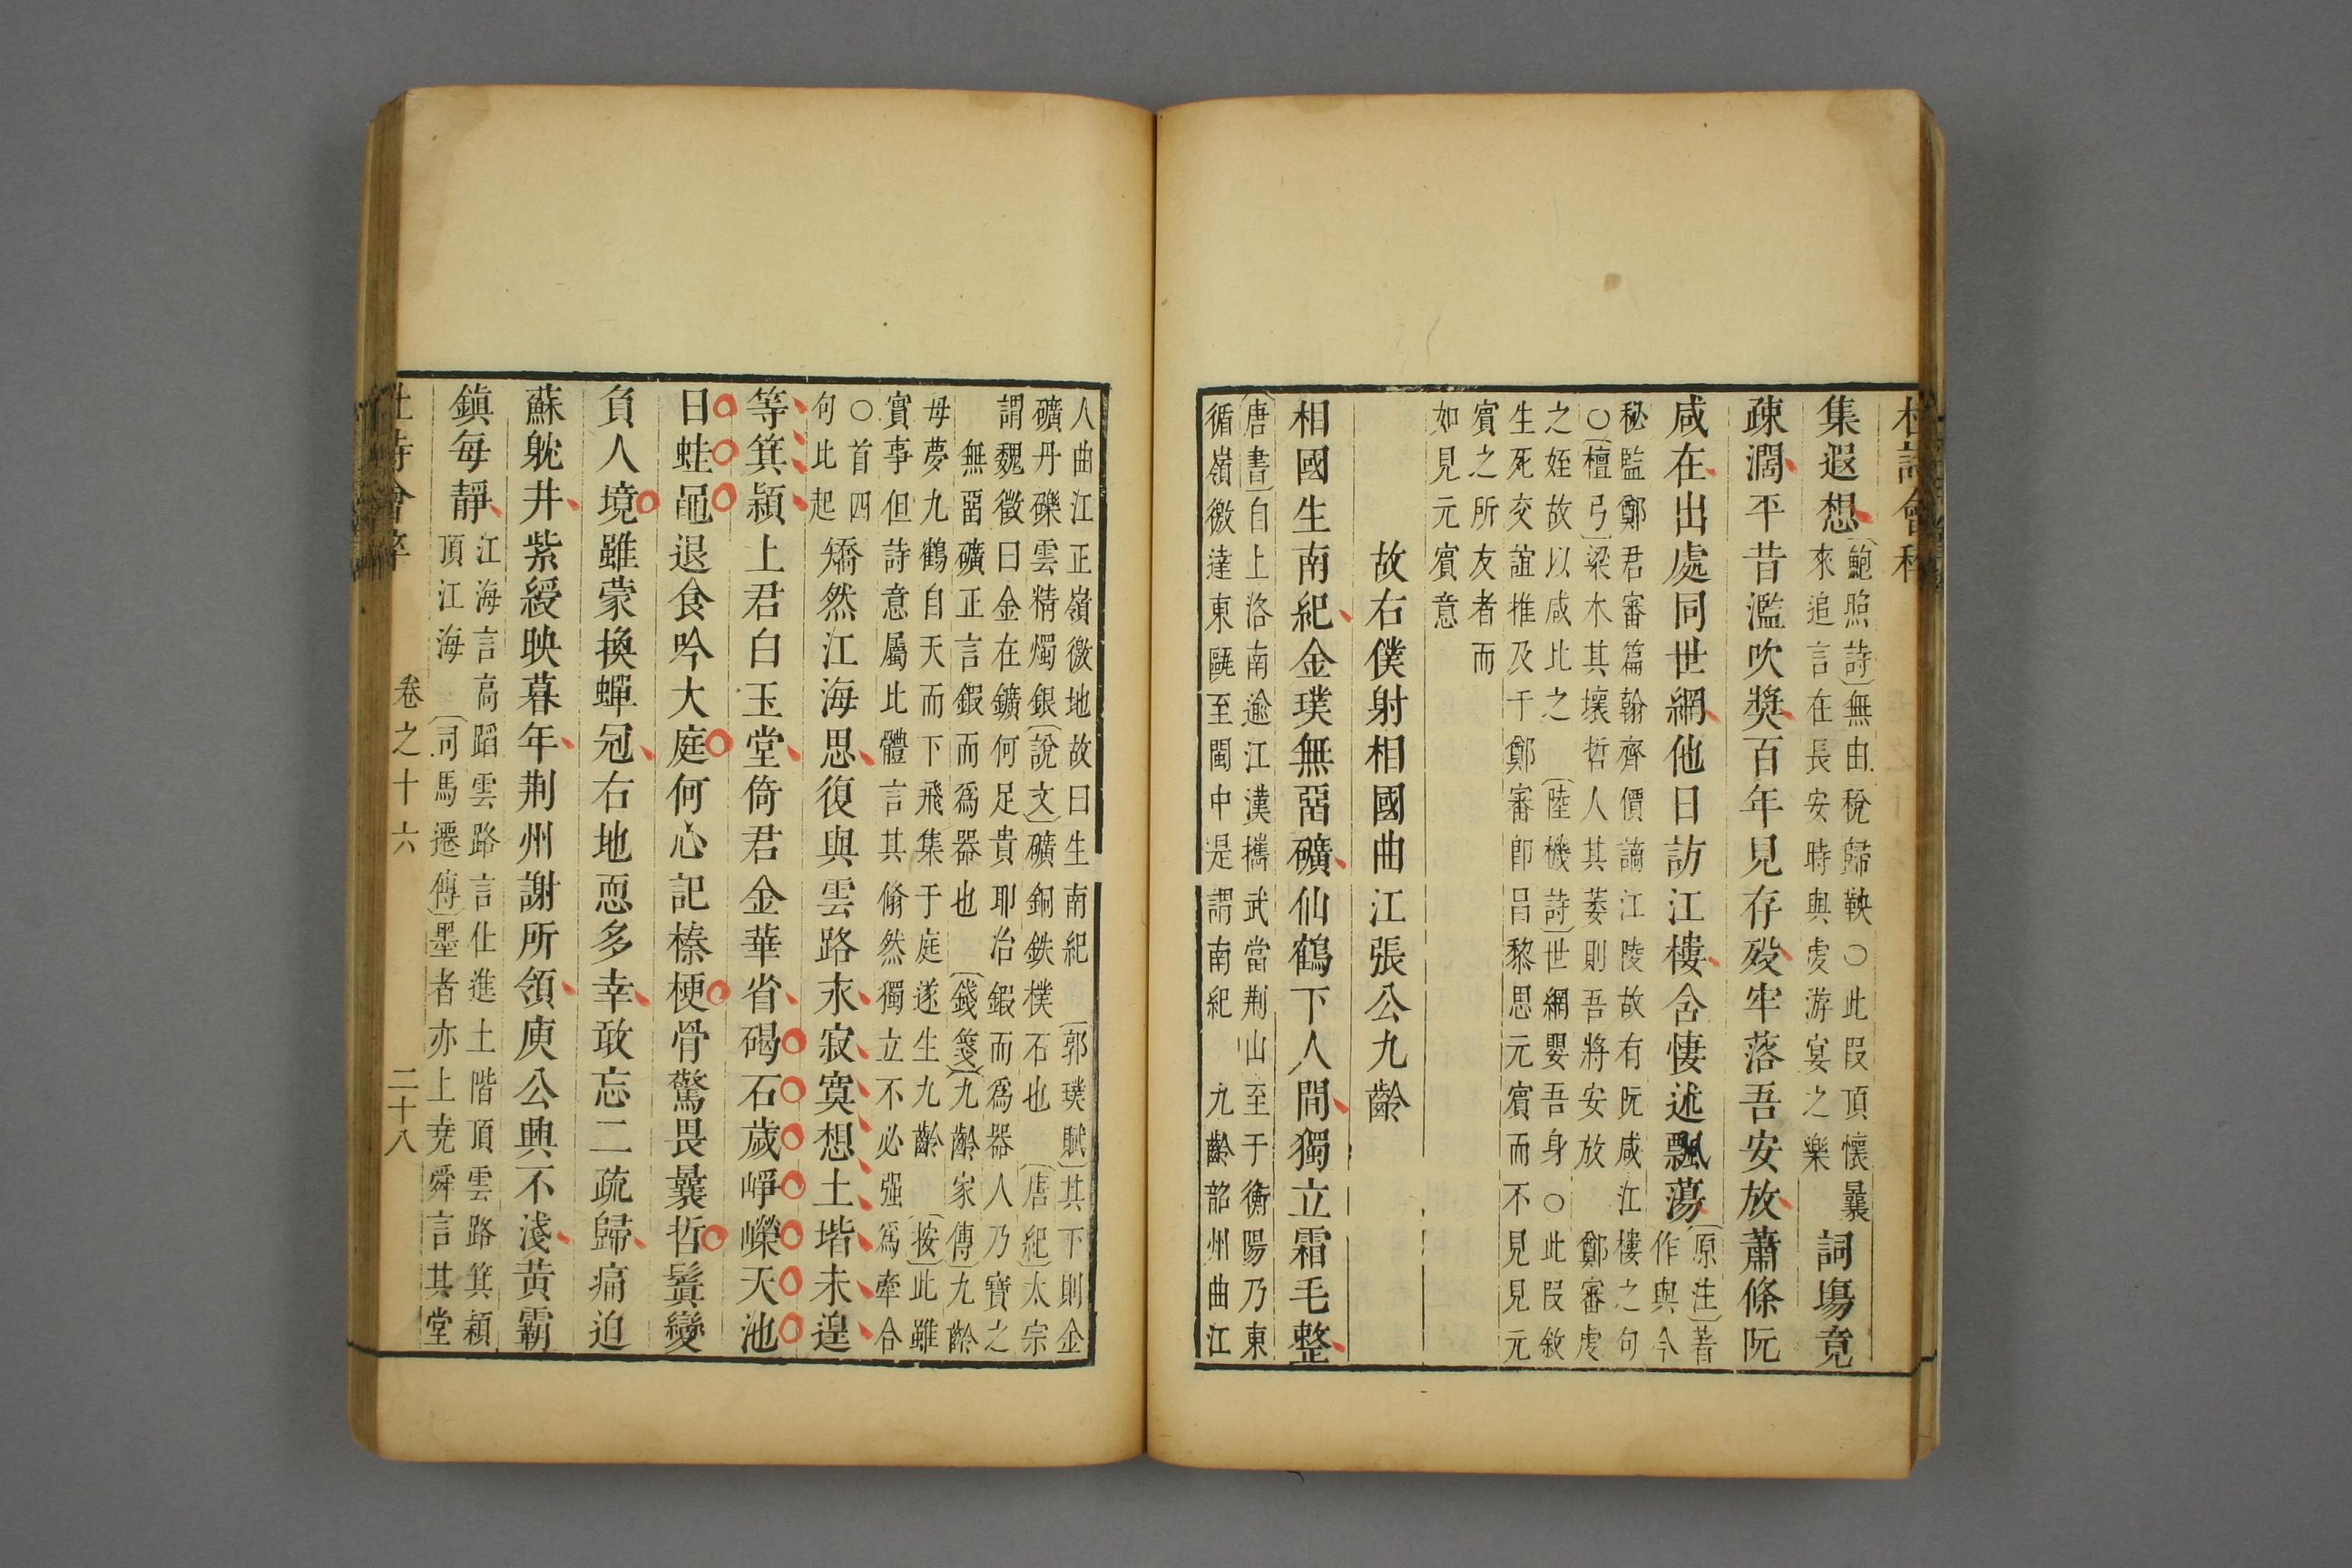 集遐想
鮑照詩無由稅歸鞅○此叚頂懷曩
來追言在長安時與虔游宴之樂
詞塲竟
疎濶平昔濫吹奬百年見存歿牢落吾安放蕭條阮
咸在出處同世網他日訪江樓含悽述飄蕩
原注著
作與今
秘監鄭君審篇翰齊價謫江陵故有阮咸江樓之句
○檀弓梁木其壞哲人其萎則吾將安放　鄭審虔
之姪故以咸比之　陸機詩世網嬰吾身○此叚敘
生死交誼推及于鄭審即呂黎思元賓而不見見元
賓之所友者而
如見元賓意
故右僕射相國曲江張公九齡
相國生南紀金璞無畱礦仙鶴下人間獨立霜毛整
唐書自上洛南逾江漢攜武當荆山至于衡陽乃東
循嶺徼達東甌至閩中是謂南紀　九齡韶州曲江
人曲江正嶺徼地故曰生南紀　郭璞賦其下則金
礦丹礫雲精燭銀說文礦銅鉄樸石也　唐紀太宗
謂魏徵曰金在鑛何足貴耶冶鍜而為器人乃寶之
無畱礦正言鍜而爲器也　錢箋九齡家傳九齡
母夢九鶴自天而下飛集于庭遂生九齡　按此雖
實事但詩意屬比體言其翛然獨立不必强爲牽合
○首四
句此起
矯然江海思復與雲路永寂寞想土堦未遑
等箕潁上君白玉堂倚君金華省碣石歲崢嶸天池
日蛙黽退食吟大庭何心記榛梗骨驚畏曩哲鬒變
負人境雖蒙換蟬冠右地恧多幸敢忘二疏歸痛迫
蘇躭井紫綬映暮年荆州謝所領庾公興不淺黃霸
鎮每靜
江海言高蹈雲路言仕進土階頂雲路箕潁
頂江海　司馬遷傳墨者亦上尭舜言其堂
卷之十六　二十八